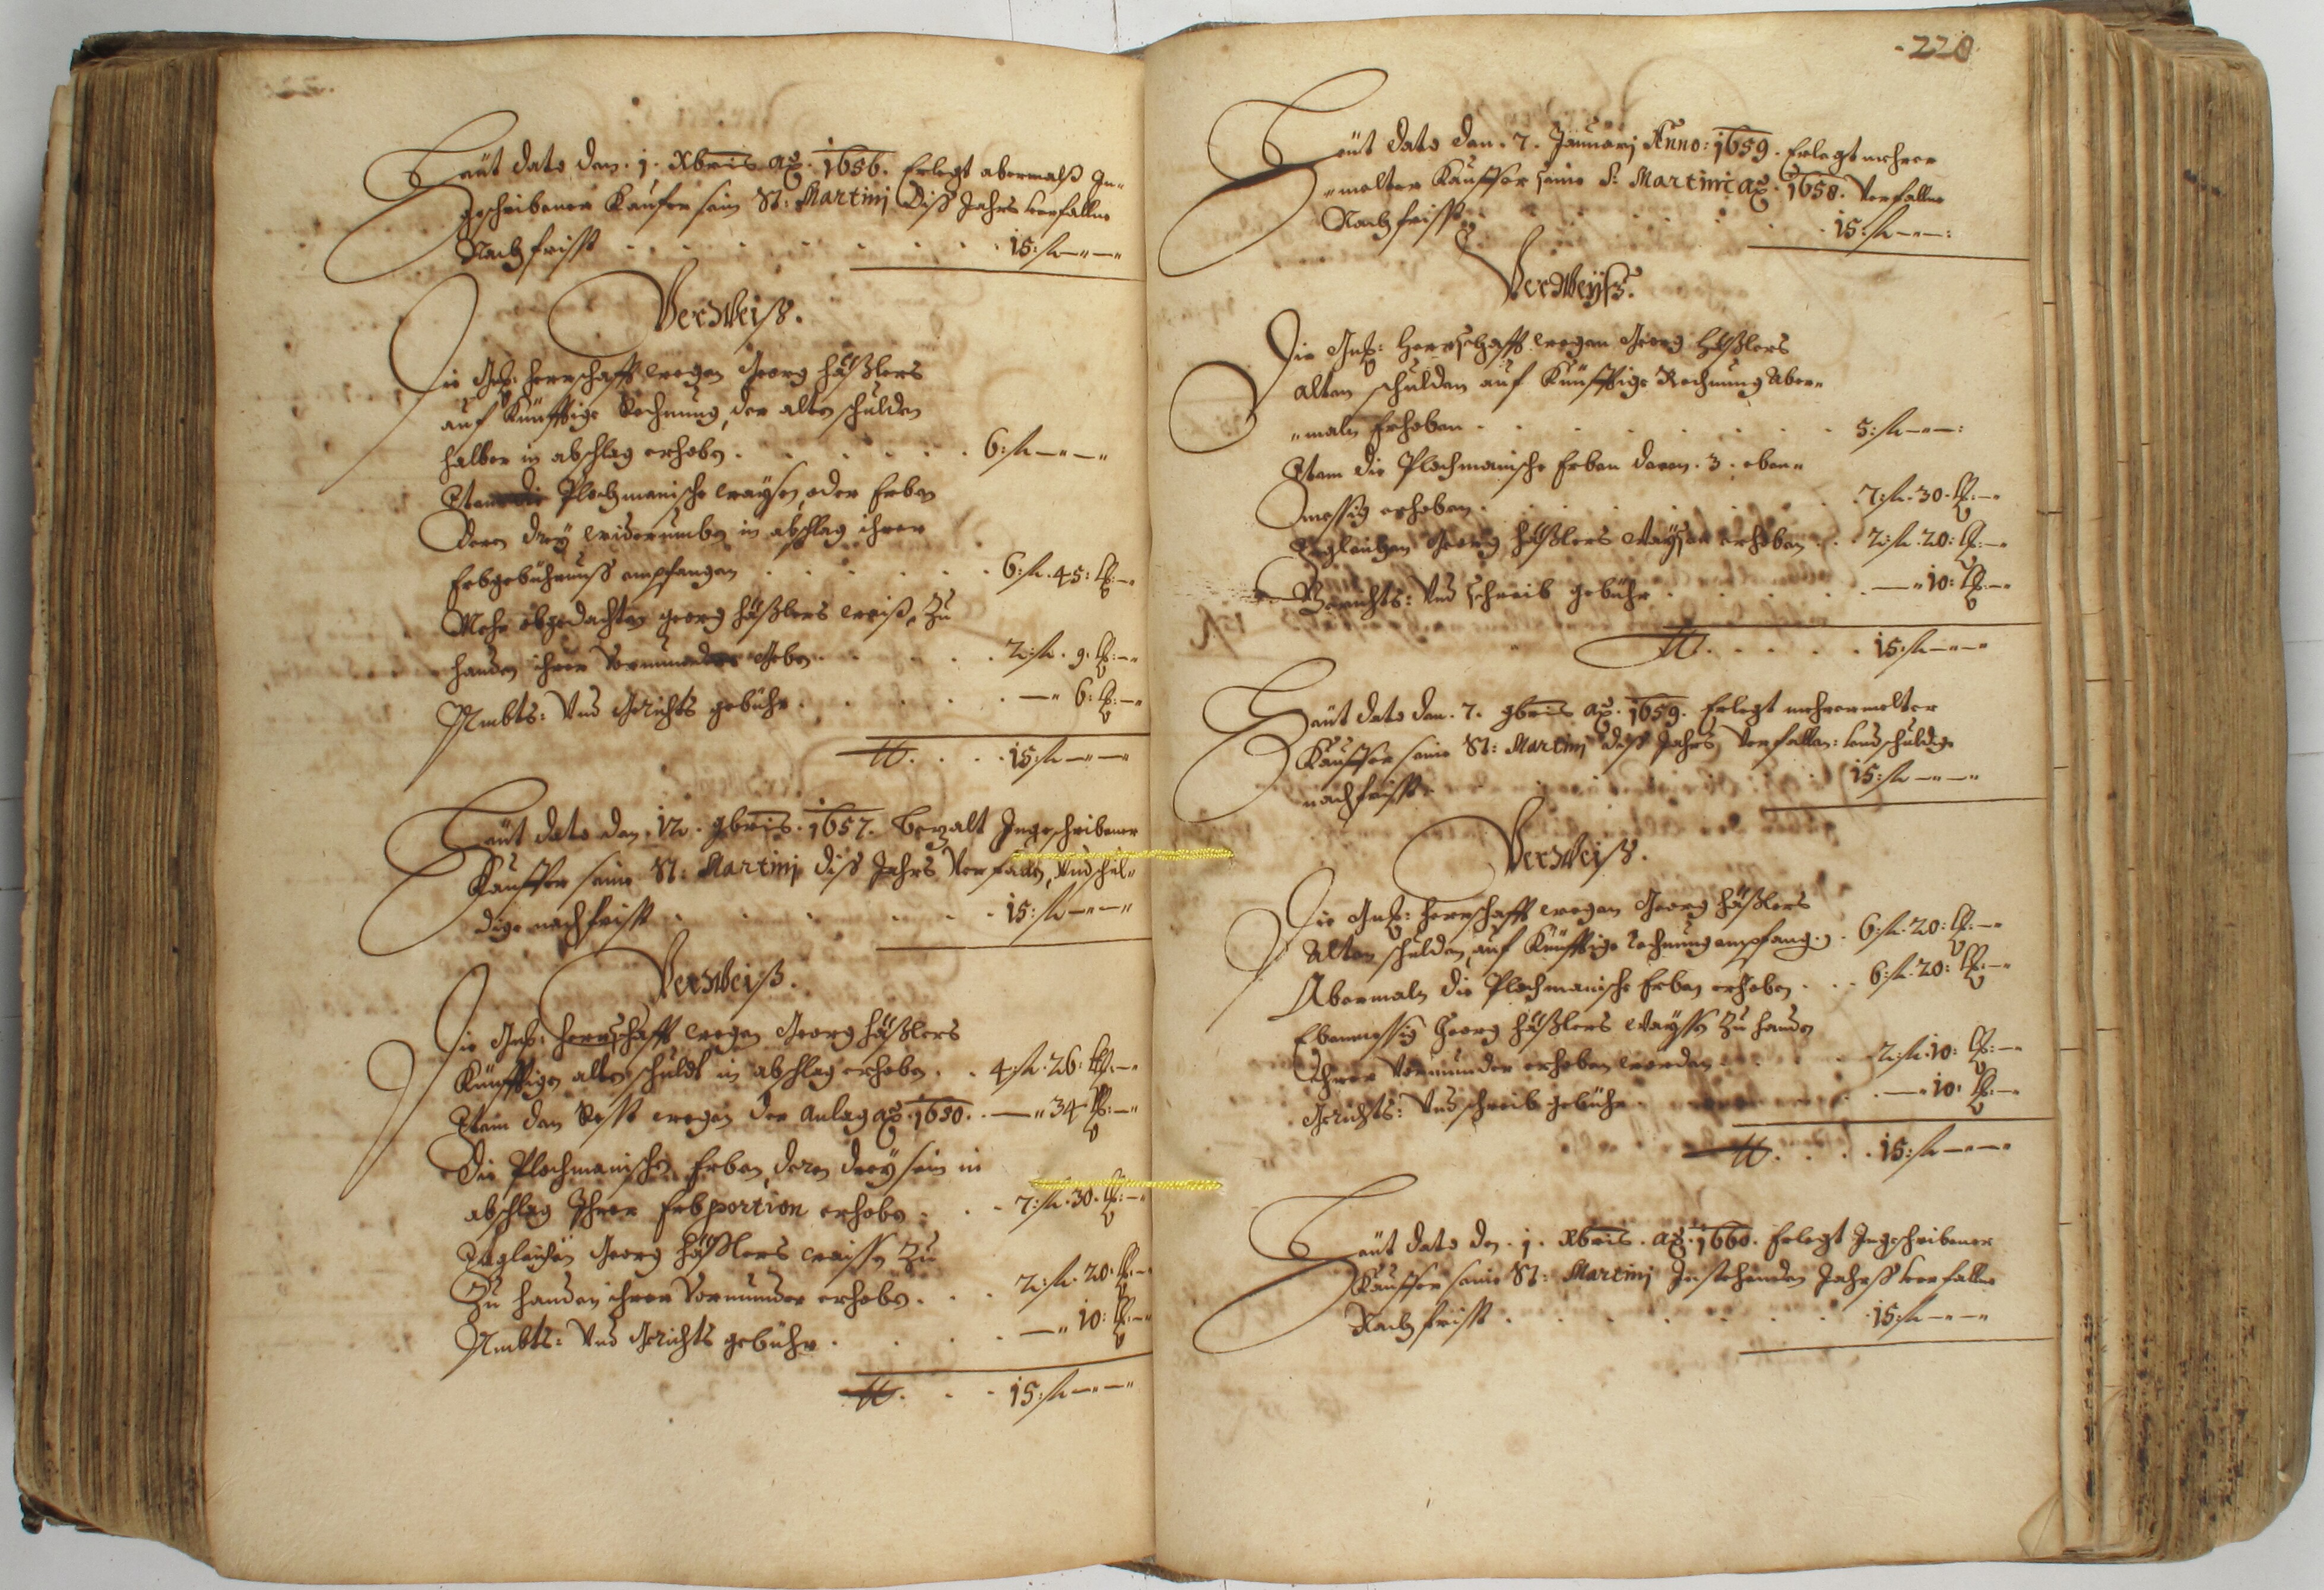 Heüt dato den . 1 . Xbris aō. 1656. Erlegt abermalß In-
geschribener Kaufer sein St: Martinj diß Jahrs verfallne
Nachfrisst . . . . . . . 15: fl — " — "
Verweiß.
Die Gnd: Herrschafft wegen Georg Häßlers
auf Künfftige Rechnung, der alten schulden
halber in abschlag erhoben . . . . . 6: fl — " — "
Item die Plochmanische waysen, oder Erben
deren drey widerumben in abschlag ihrer
Erbgebührnuß empfangen . . . . . 6: fl . 45: kr: — "
Mehr obgedachten Georg Häßlers waiß, Zu
handen ihrer Vormunder Geben . . . . 2: fl . 9: kr: — "
Ambts: Und Gerichts gebühr . . . . . — " 6: kr: — "
15: fl — " — "
Heüt dato den . 12 . 9bris . 1657. bezalt Ingeschribener
Kauffer seine St: Martinj diß Jahrs Verfallen, Und schul-
dige nachfrisst . . . . . . 15: fl — " — "
Verweiß.
Die Gnd: Herrschafft wegen Georg Häßlers
Künfftigen alten schuldt in abschlag erhoben . . 4: fl . 26: kr: — "
Item den Resst wegen der Anlag aō. 1650. . — " 34 kr: — "
Die Plochmanischen Erben, deren drey sein in
abschlag Ihrer Erbportion erhoben . . . 7: fl . 30. kr: — "
Ingleichen Georg Häßlers waissen Zu
Zu handen ihrer Vormunder erhoben . . . 2: fl . 20: kr: — "
Ambts: Und Gerichts gebühr . . . . — " 10: kr: — "
15: fl — " — "
. 220.
Heüt dato den . 7. Januarj Anno: 1659. Erlegt mehrer
"melter Kauffer seine S: Martini aō. 1658. Verfallne
Nachfrisst . . . . . . . 15: fl — " — :
Verweyß.
Die Gnd: Herrschafft wegen Georg Häßlers
alten schulden auf Künfftige Rechnung Aber-
"maln Erhoben . . . . . . . 5: fl — " — :
Item die Plochmanische Erben deren . 3 . eben-
messig erhoben . . . . . . . 7: fl . 30. kr: — "
Ingleichen Georg Häßlers Waysen erhoben . . 2: fl . 20: kr: — "
Gerichts: Und schreib gebühr . . . . . — " 10: kr: — "
15: fl — " — "
Heüt dato den . 7. 9bris aō. 1659. Erlegt mehrermelter
Kauffer seine St: Martinj diß Jahrs Verfallen: Und schuldige
nachfrisst . . . . . . . 15: fl — " — "
Verweiß.
Die Gnd: Herrschafft wegen Georg Häßlers
Alten schulden, auf Künfftige Rechnung empfang. . 6: fl . 20: kr: — "
Abermaln die Plochmanische Erben erhoben . . . 6: fl . 20: kr: — "
Ebenmessig Georg Häßlers Wayssen Zu handen
Ihrer Vormunder erhoben worden . . . . 2: fl . 10: kr: — "
Gerichts: Und schreib gebühr . . . . . — " 10: kr: — "
15: fl — " — "
Heüt dato den . 1 . Xbris . aō. 1660. Erlegt Ingeschribener
Kauffer seine St: Martinj Instehenden Jahrß verfallne
Nachfrisst . . . . . . . 15: fl — " — "